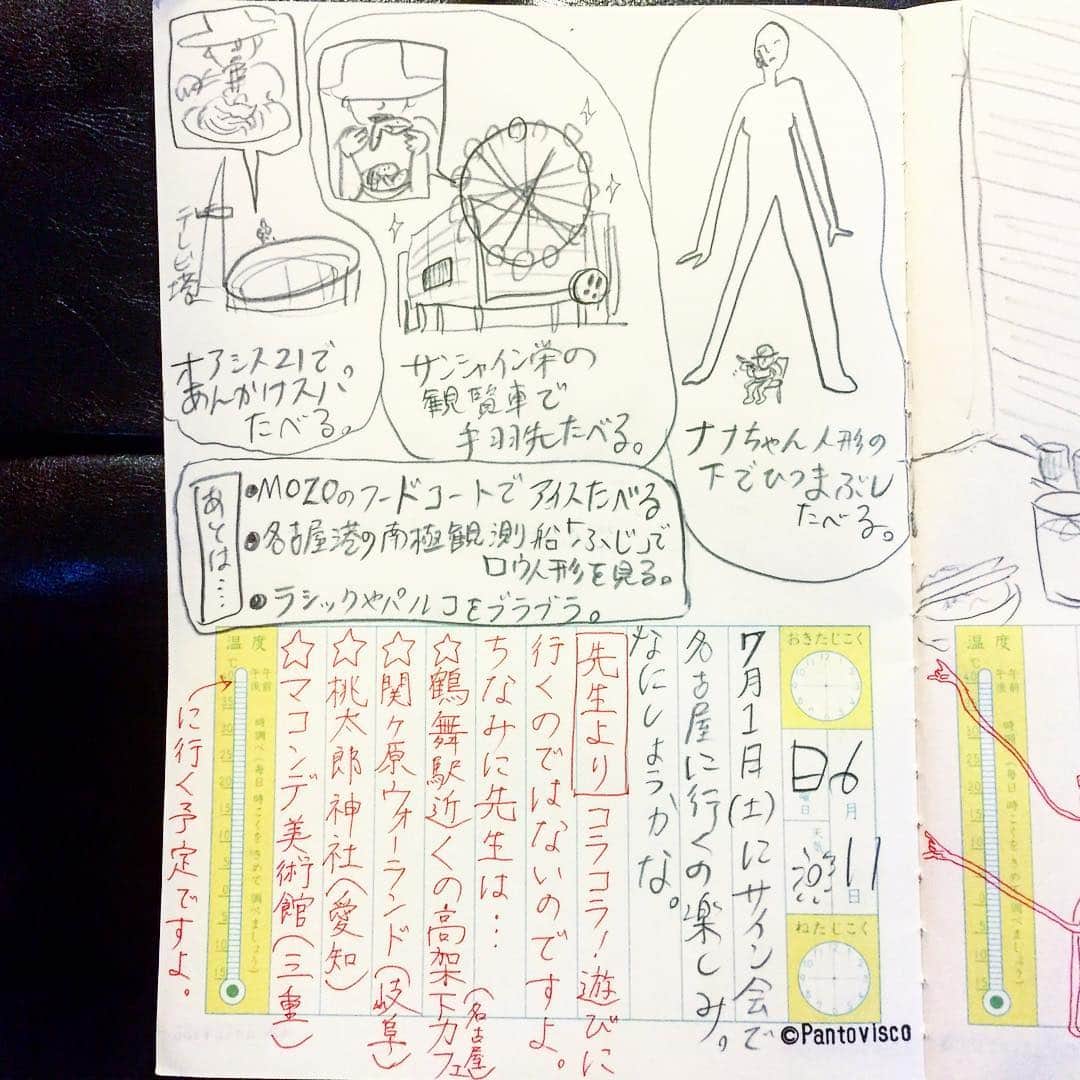 テレビ塔
オアシス21で
あんかけスパ
たべる。
サンシャイン栄の
観覧車で
手羽先たべる。
ナナちゃん人形の
下でひつまぶし
たべる。
あとは…
●MOZOのフードコートでアイスたべる
●名古屋港の南極観測船「ふじ」で
ロウ人形を見る。
●ラシックやパルコをブラブラ。
おきたじこく
6月11日
日曜日
天気
ねたじこく
7月1日(土)にサイン会で
名古屋に行くの楽しみ。
なにしようかな。
先生より コラコラ!遊びに
行くのではないのですよ。
ちなみに先生は…
☆鶴舞駅近くの高架下カフェ(名古屋)
☆関ヶ原ウォーランド(岐阜)
☆桃太郎神社(愛知)
☆マコンデ美術館(三重)
に行く予定ですよ。
温度
℃
午前
午後
時調べ(毎日時こくをきめて調べましょう)
40
35
30
25
20
15
10
5
0
5
10
15
©Pantovisco
午前
午後